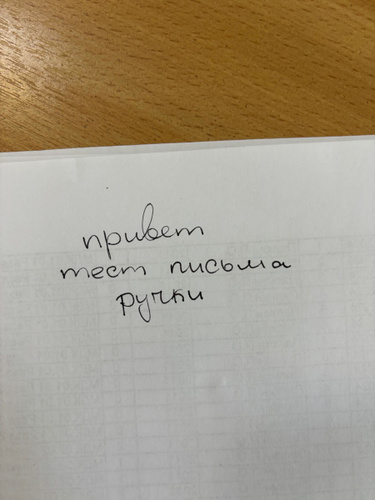 привет
тест письма
ручки